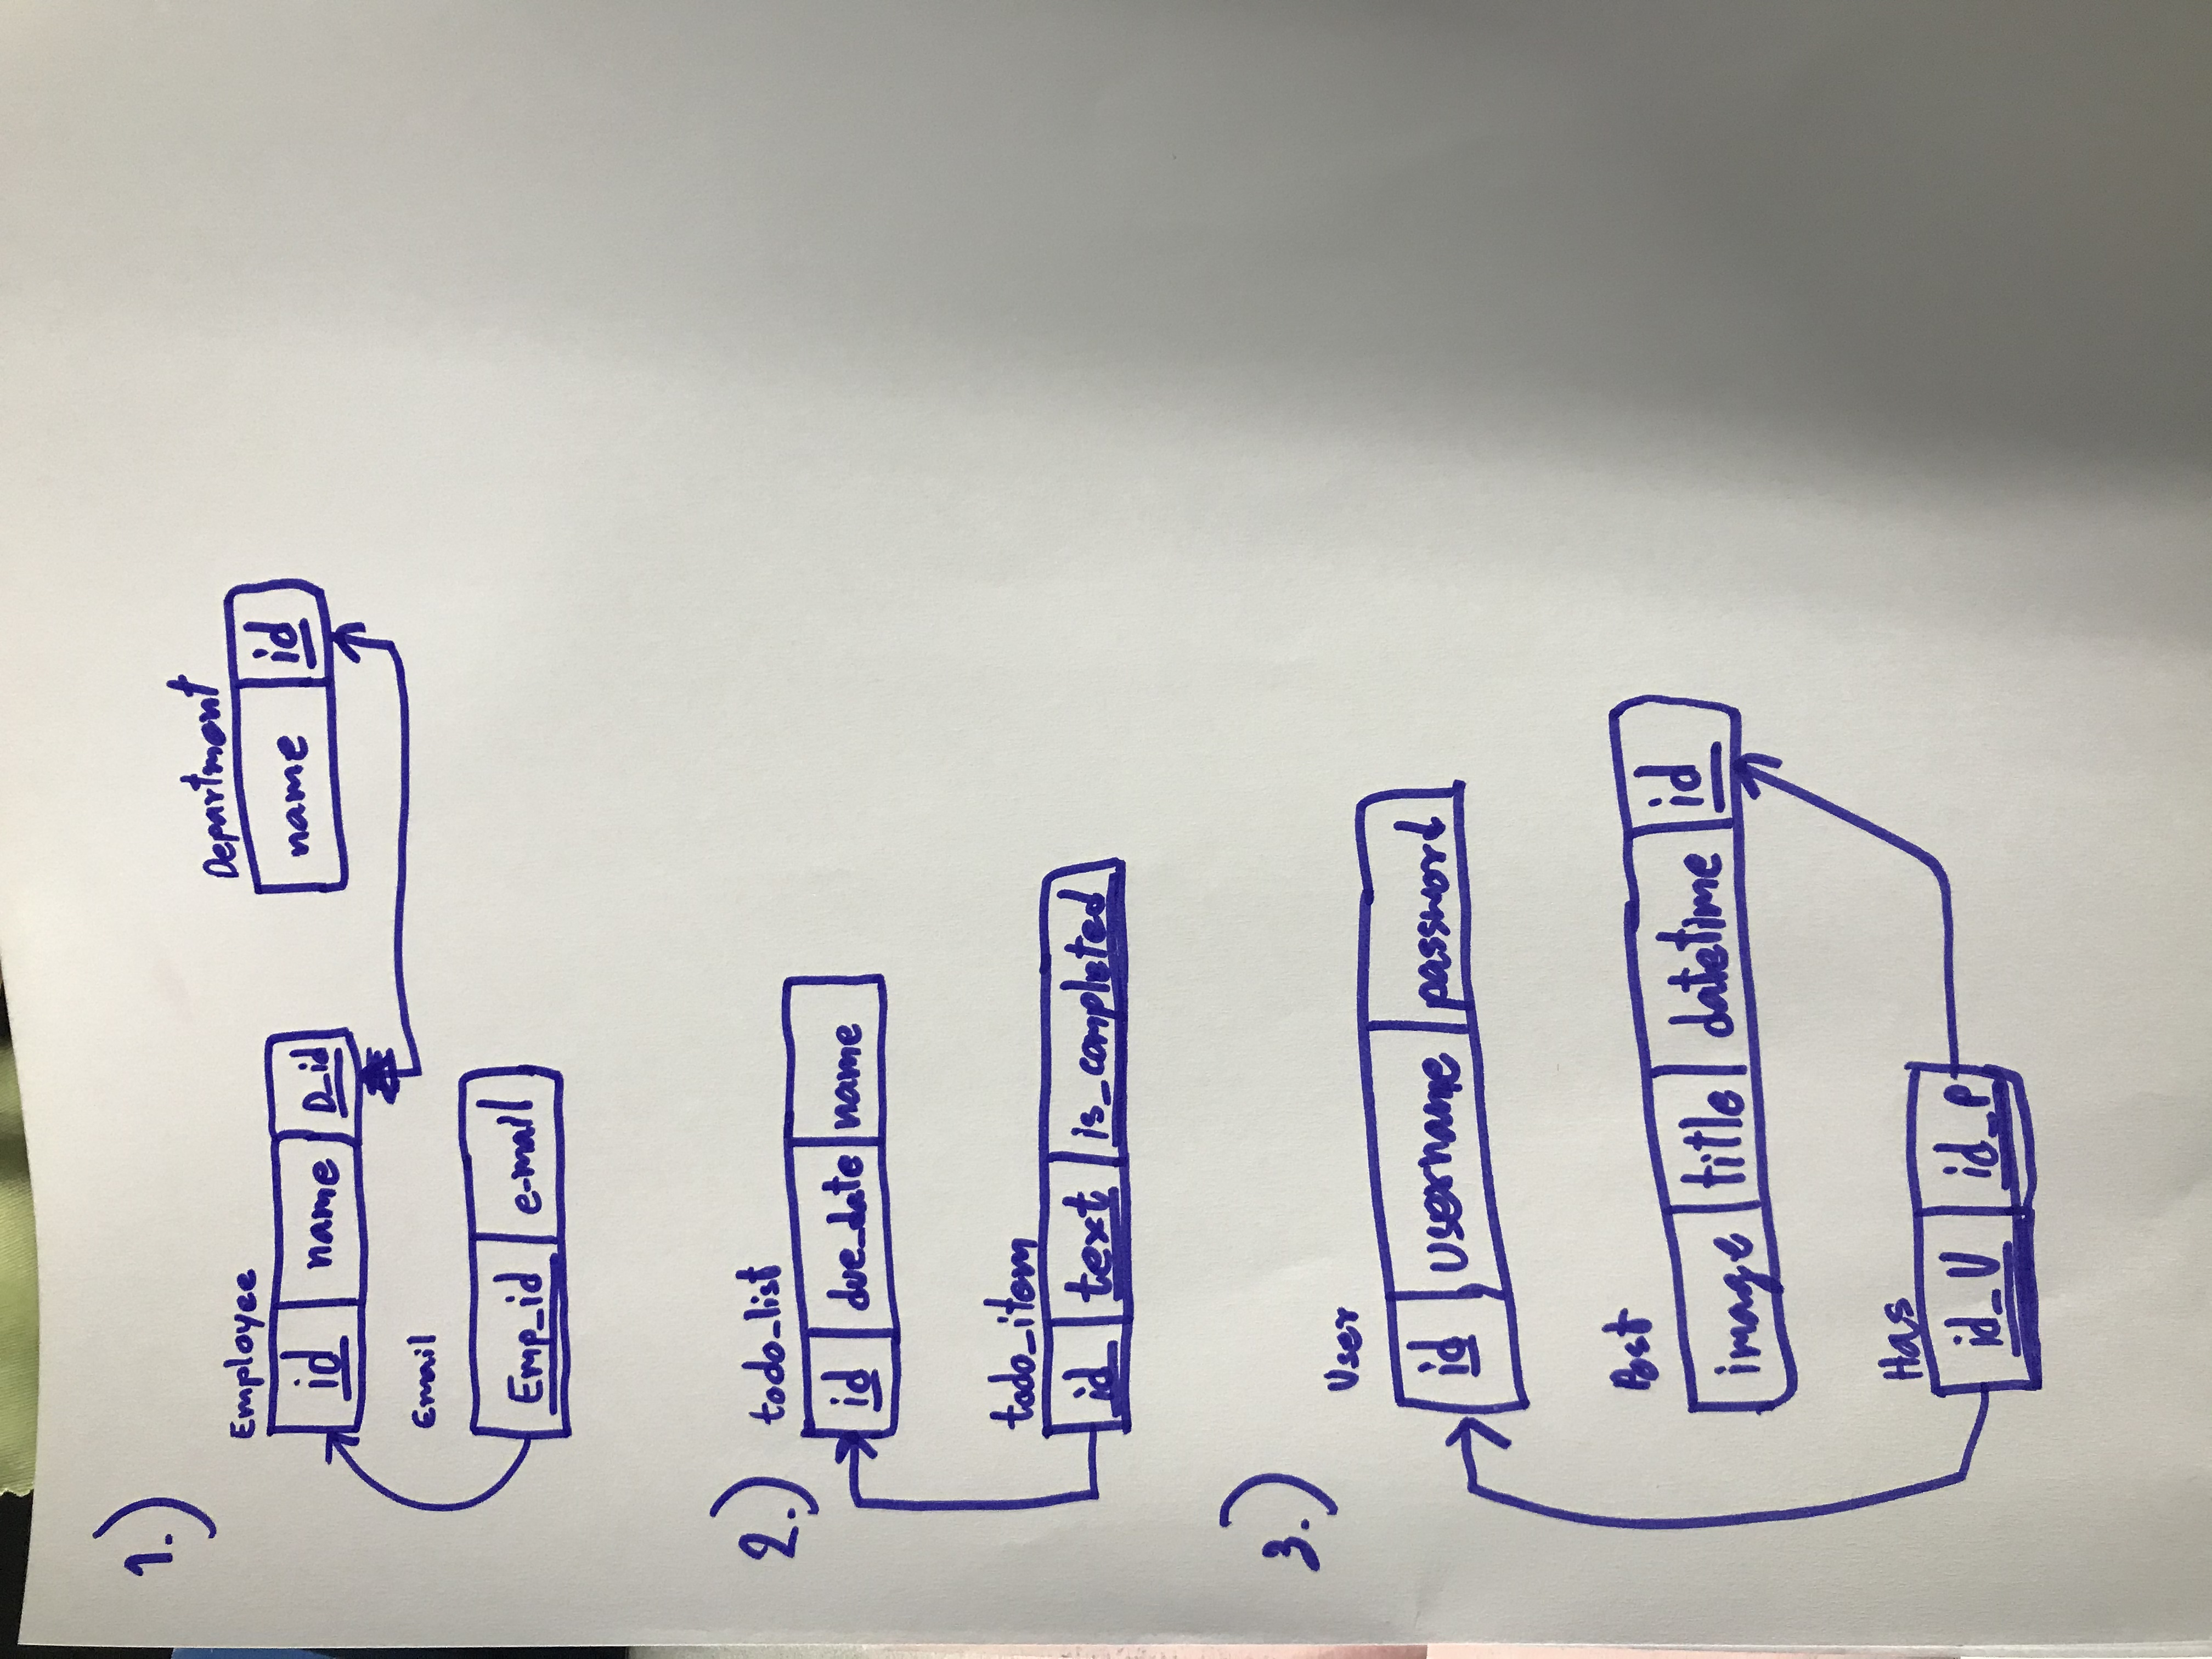 1.)
Employee
id name D_id
Department
name id
Email
Emp_id e-mail
2.)
todo_list
id due_date name
todo_item
id text is_completed
3.)
User
id username password
Post
image title datetime id
Has
id_U id_P